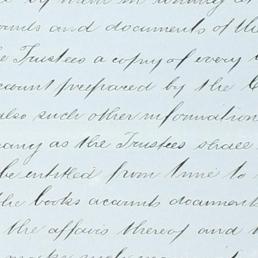 ounts and documents of the
e Trustees a copy of every
ccount prepared by the
also such other information
any as the Trustees shall
be entitled from time to
the books accounts document
the affairs thereof and